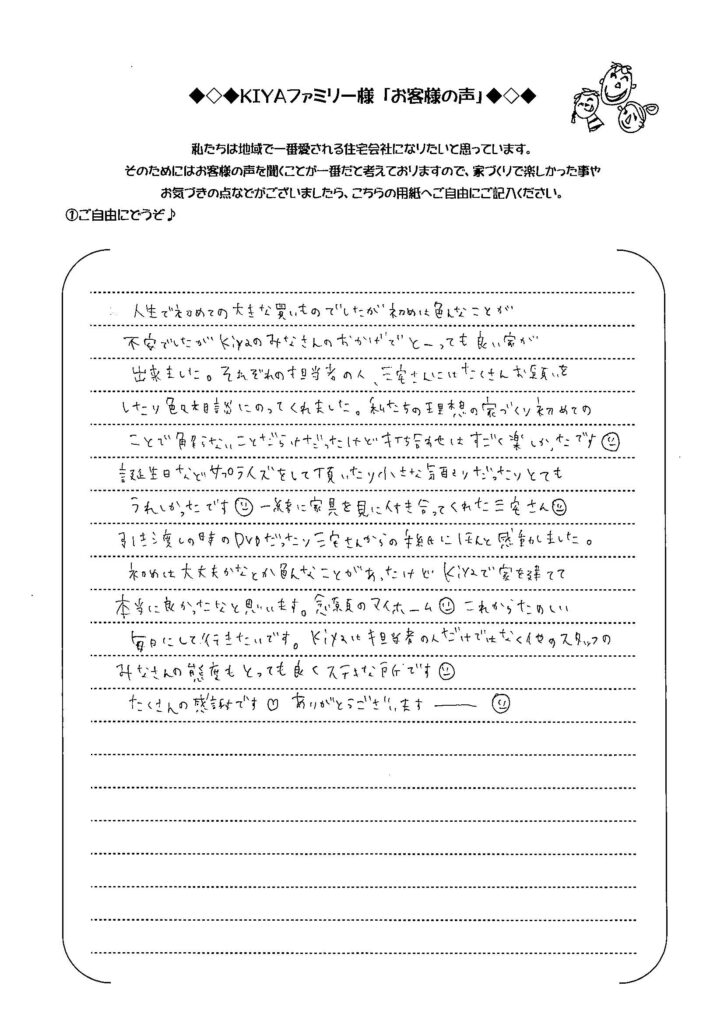 ◆◇◆KIYAファミリー様「お客様の声」◆◇◆
私たちは地域で一番愛される住宅会社になりたいと思っています。
そのためにはお客様の声を聞くことが一番だと考えておりますので、家づくりで楽しかった事や
お気づきの点などがございましたら、こちらの用紙へご自由にご記入ください。
①ご自由にどうぞ♪
人生で初めての大きな買いものでしたが初めは色んなことが
不安でしたがKiyaのみなさんのおかげでとーっても良い家が
出来ました。それぞれの担当者の人、三宅さんにはたくさんお願いを
したり色々相談にのってくれました。私たちの理想の家づくり初めての
ことで解らないことだらけだったけど打ち合わせはすごく楽しかったです☺
誕生日などサプライズをして頂いたり小さな気配りだったりとても
うれしかったです☺一緒に家具を見に付き合ってくれた三宅さん☺
引き渡しの時のDVDだったり三宅さんからの手紙にほんと感動しました。
初めは大丈夫かなとか色んなことがあったけどKiyaで家を建てて
本当に良かったなと思います。念願のマイホーム☺これからたのしい
毎日にして行きたいです。Kiyaは担当者の人だけではなく他のスタッフの
みなさんの態度もとっても良くステキな所です☺
たくさんの感謝です♡ ありがとうございます―― ☺